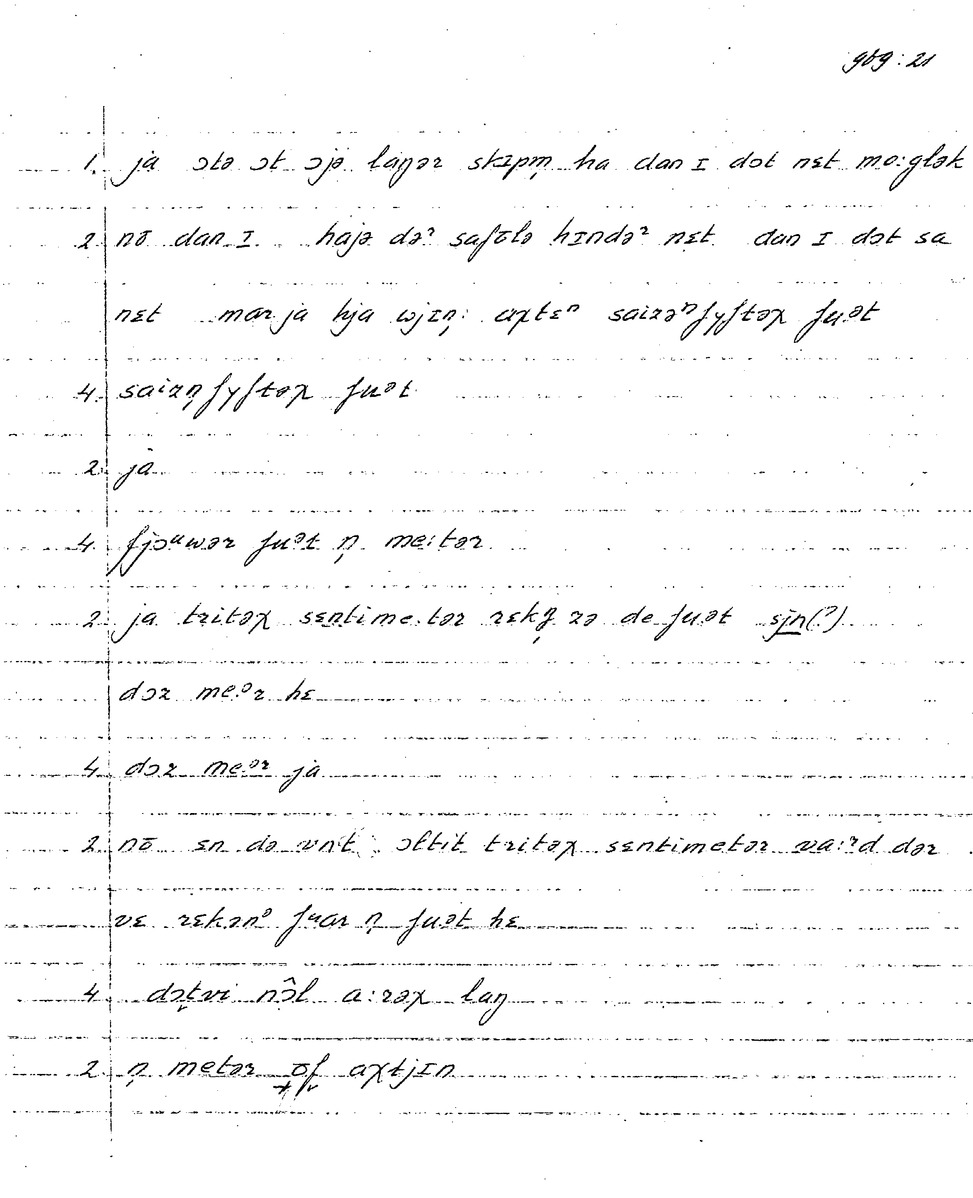 gbg: 21
1. ja ɔtə ɔt ɔjə laŋər skɪpm̩ ha dan ɪ dɔt nɛt mo:glək
2 nō dan ɪ hajə də² saʃōlə hɪndə² nɛt dan ɪ dɔt sa
nɛt mar ja hja wjɪn̩: aχtɛⁿ saizəⁿfyftəχ fuət
4. saizn̩fyftəχ fuət
2. ja
4. fjɔᵘwər fuət n̩ me:tər
2. ja tritəχ sɛntime.tər rɛkŋ̩ zə de fuət sjn(?)
dɔz me.ər hɛ
4. dɔz me.ər ja
2 nō ɛn də vnt ɔftit tritəχ sɛntimetər va:²d dər
vɛ rɛkənᵊ fᵘar n̩ fuət hɛ
4 dɔtvi nɔ̂l a:rəχ laŋ
2 n̩ metər ōf aχtjɪn